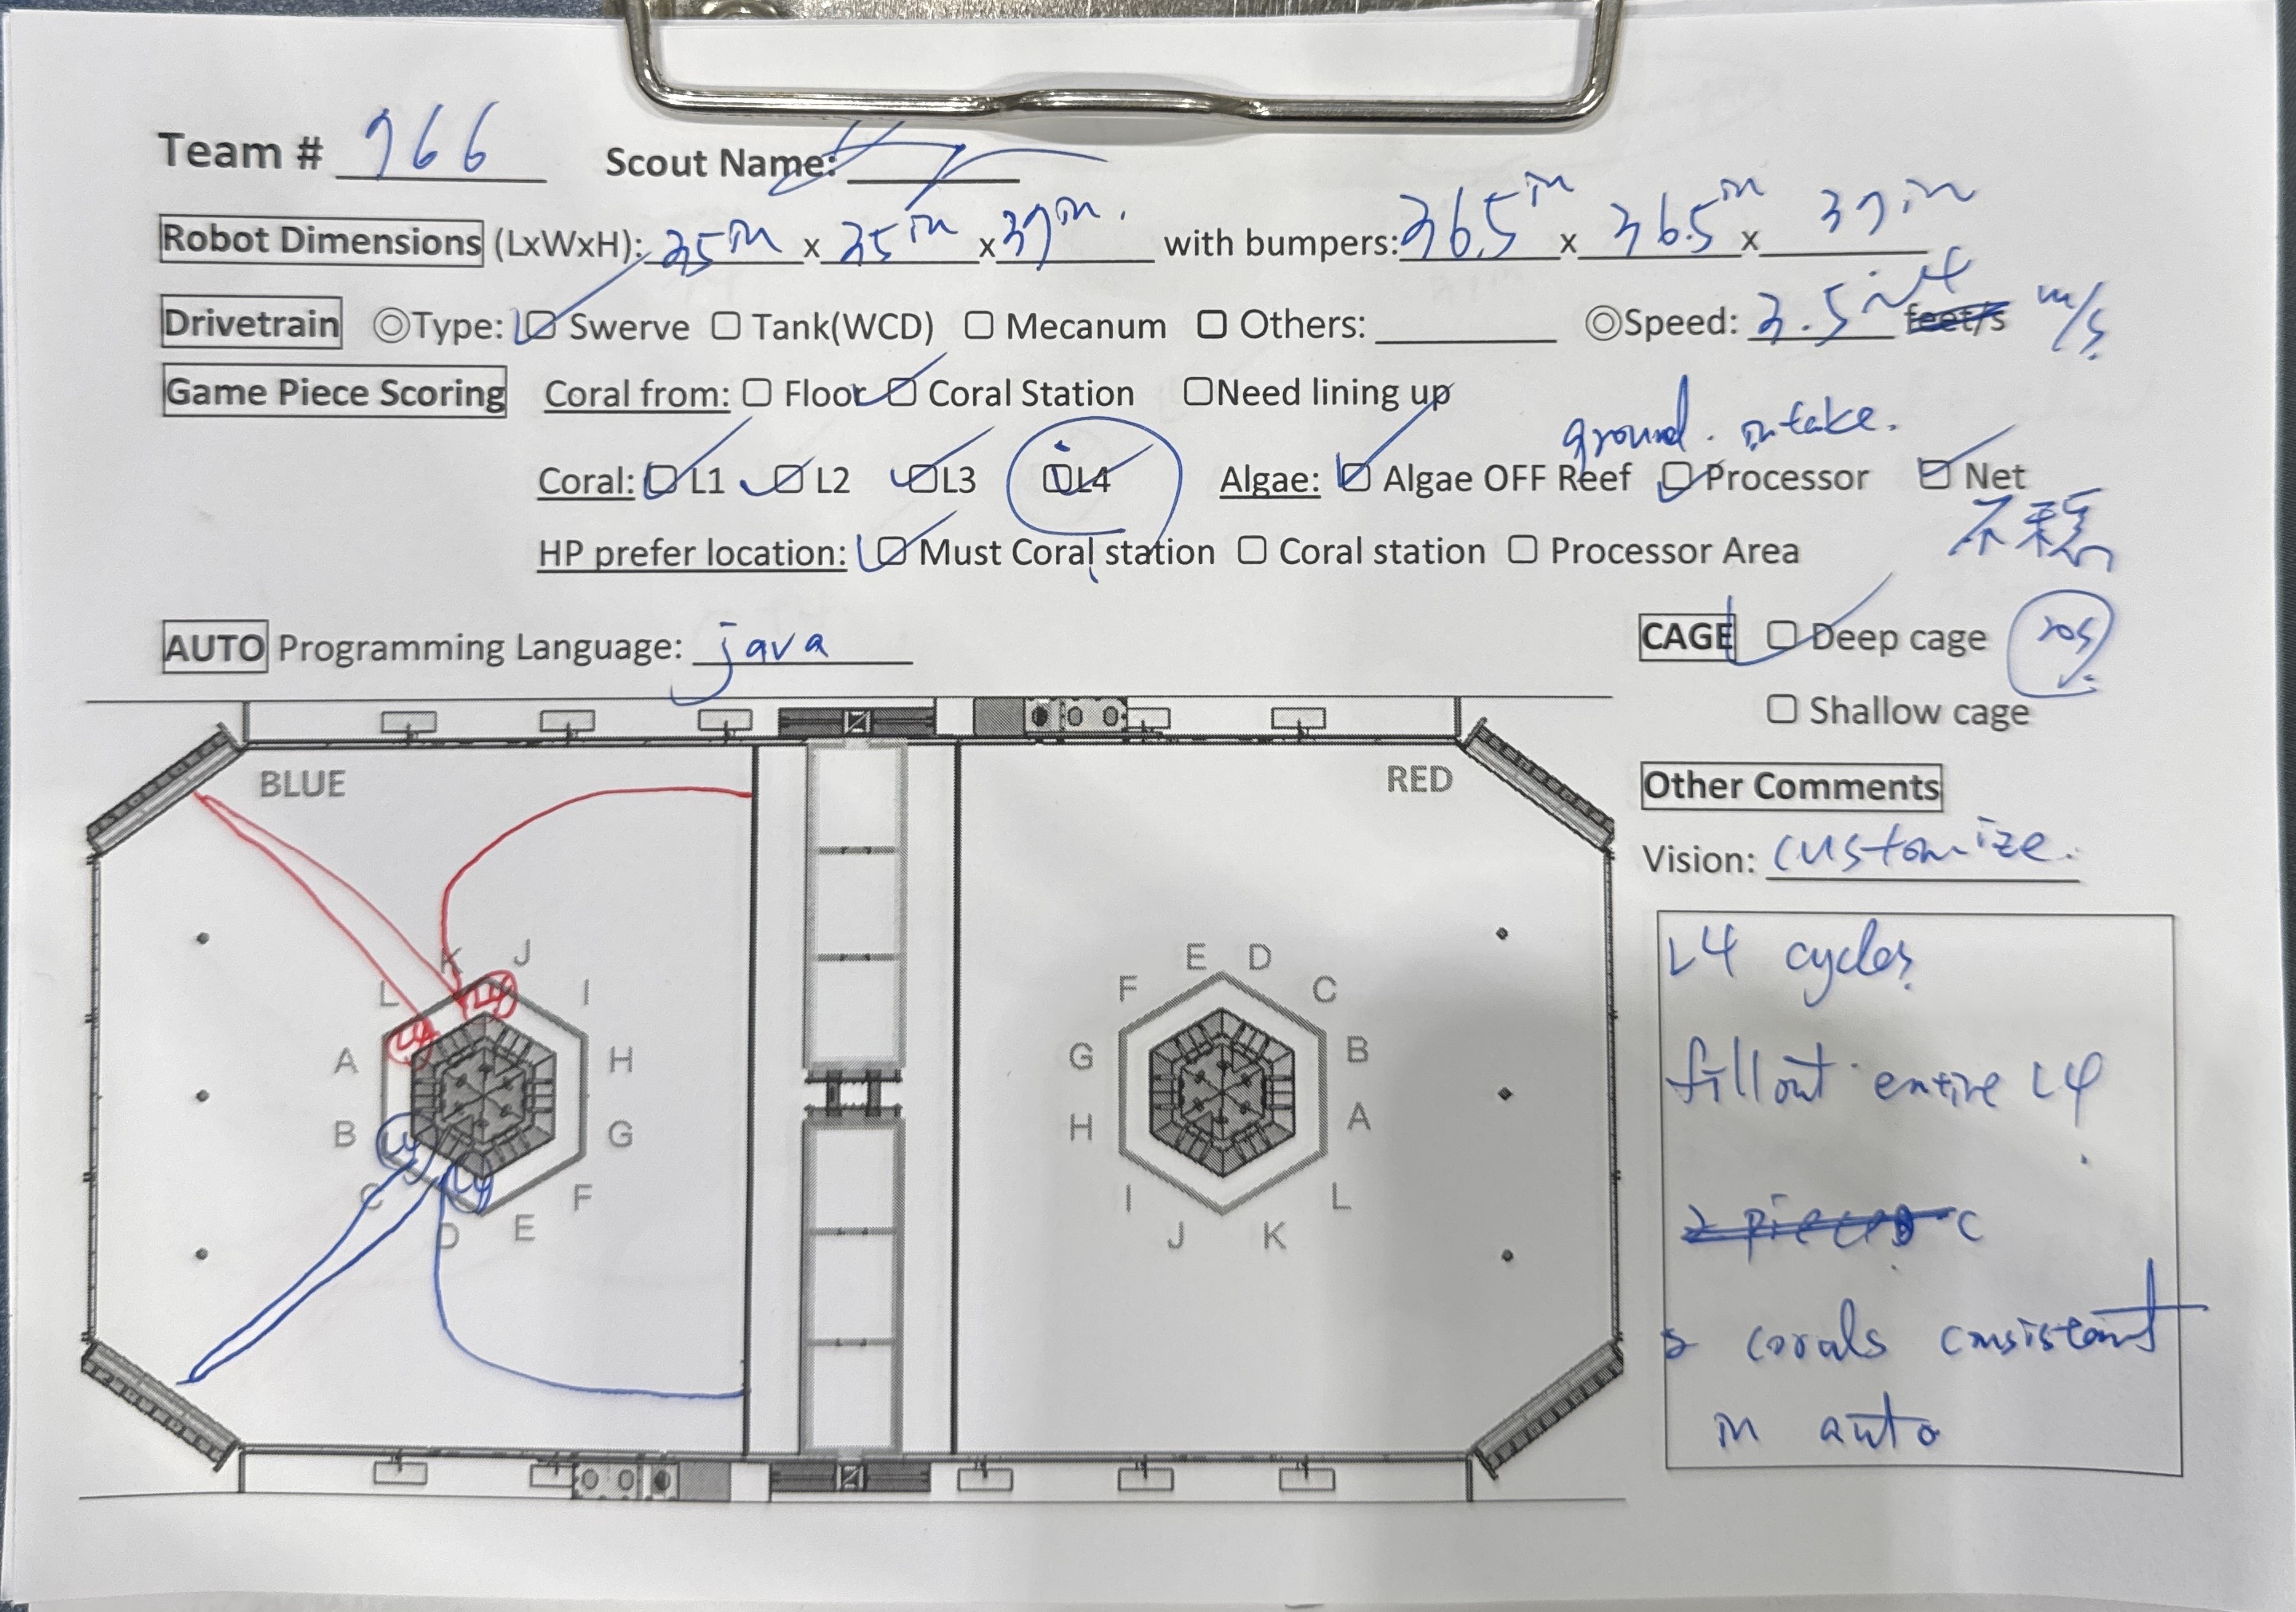 Team # 966 Scout Name:
Robot Dimensions (LxWxH): 35in x 35in x 37in. with bumpers: 36.5in x 36.5in x 37in
Drivetrain ◎Type: Swerve Tank(WCD) Mecanum Others: ◎Speed: 3.5 feet/s m/s
Game Piece Scoring Coral from: Floor Coral Station Need lining up
ground intake.
Coral: L1 L2 L3 L4 Algae: Algae OFF Reef Processor Net
不穩
HP prefer location: Must Coral station Coral station Processor Area
AUTO Programming Language: java
CAGE Deep cage
Shallow cage
BLUE
RED
Other Comments
Vision: customize.
K J
L I
L4
L4
A H
B G
L4
L4
C F
D E
E D
F C
G B
H A
I L
J K
L4 cycles
fill out entire L4
2 pieces c
corals consistant
in auto